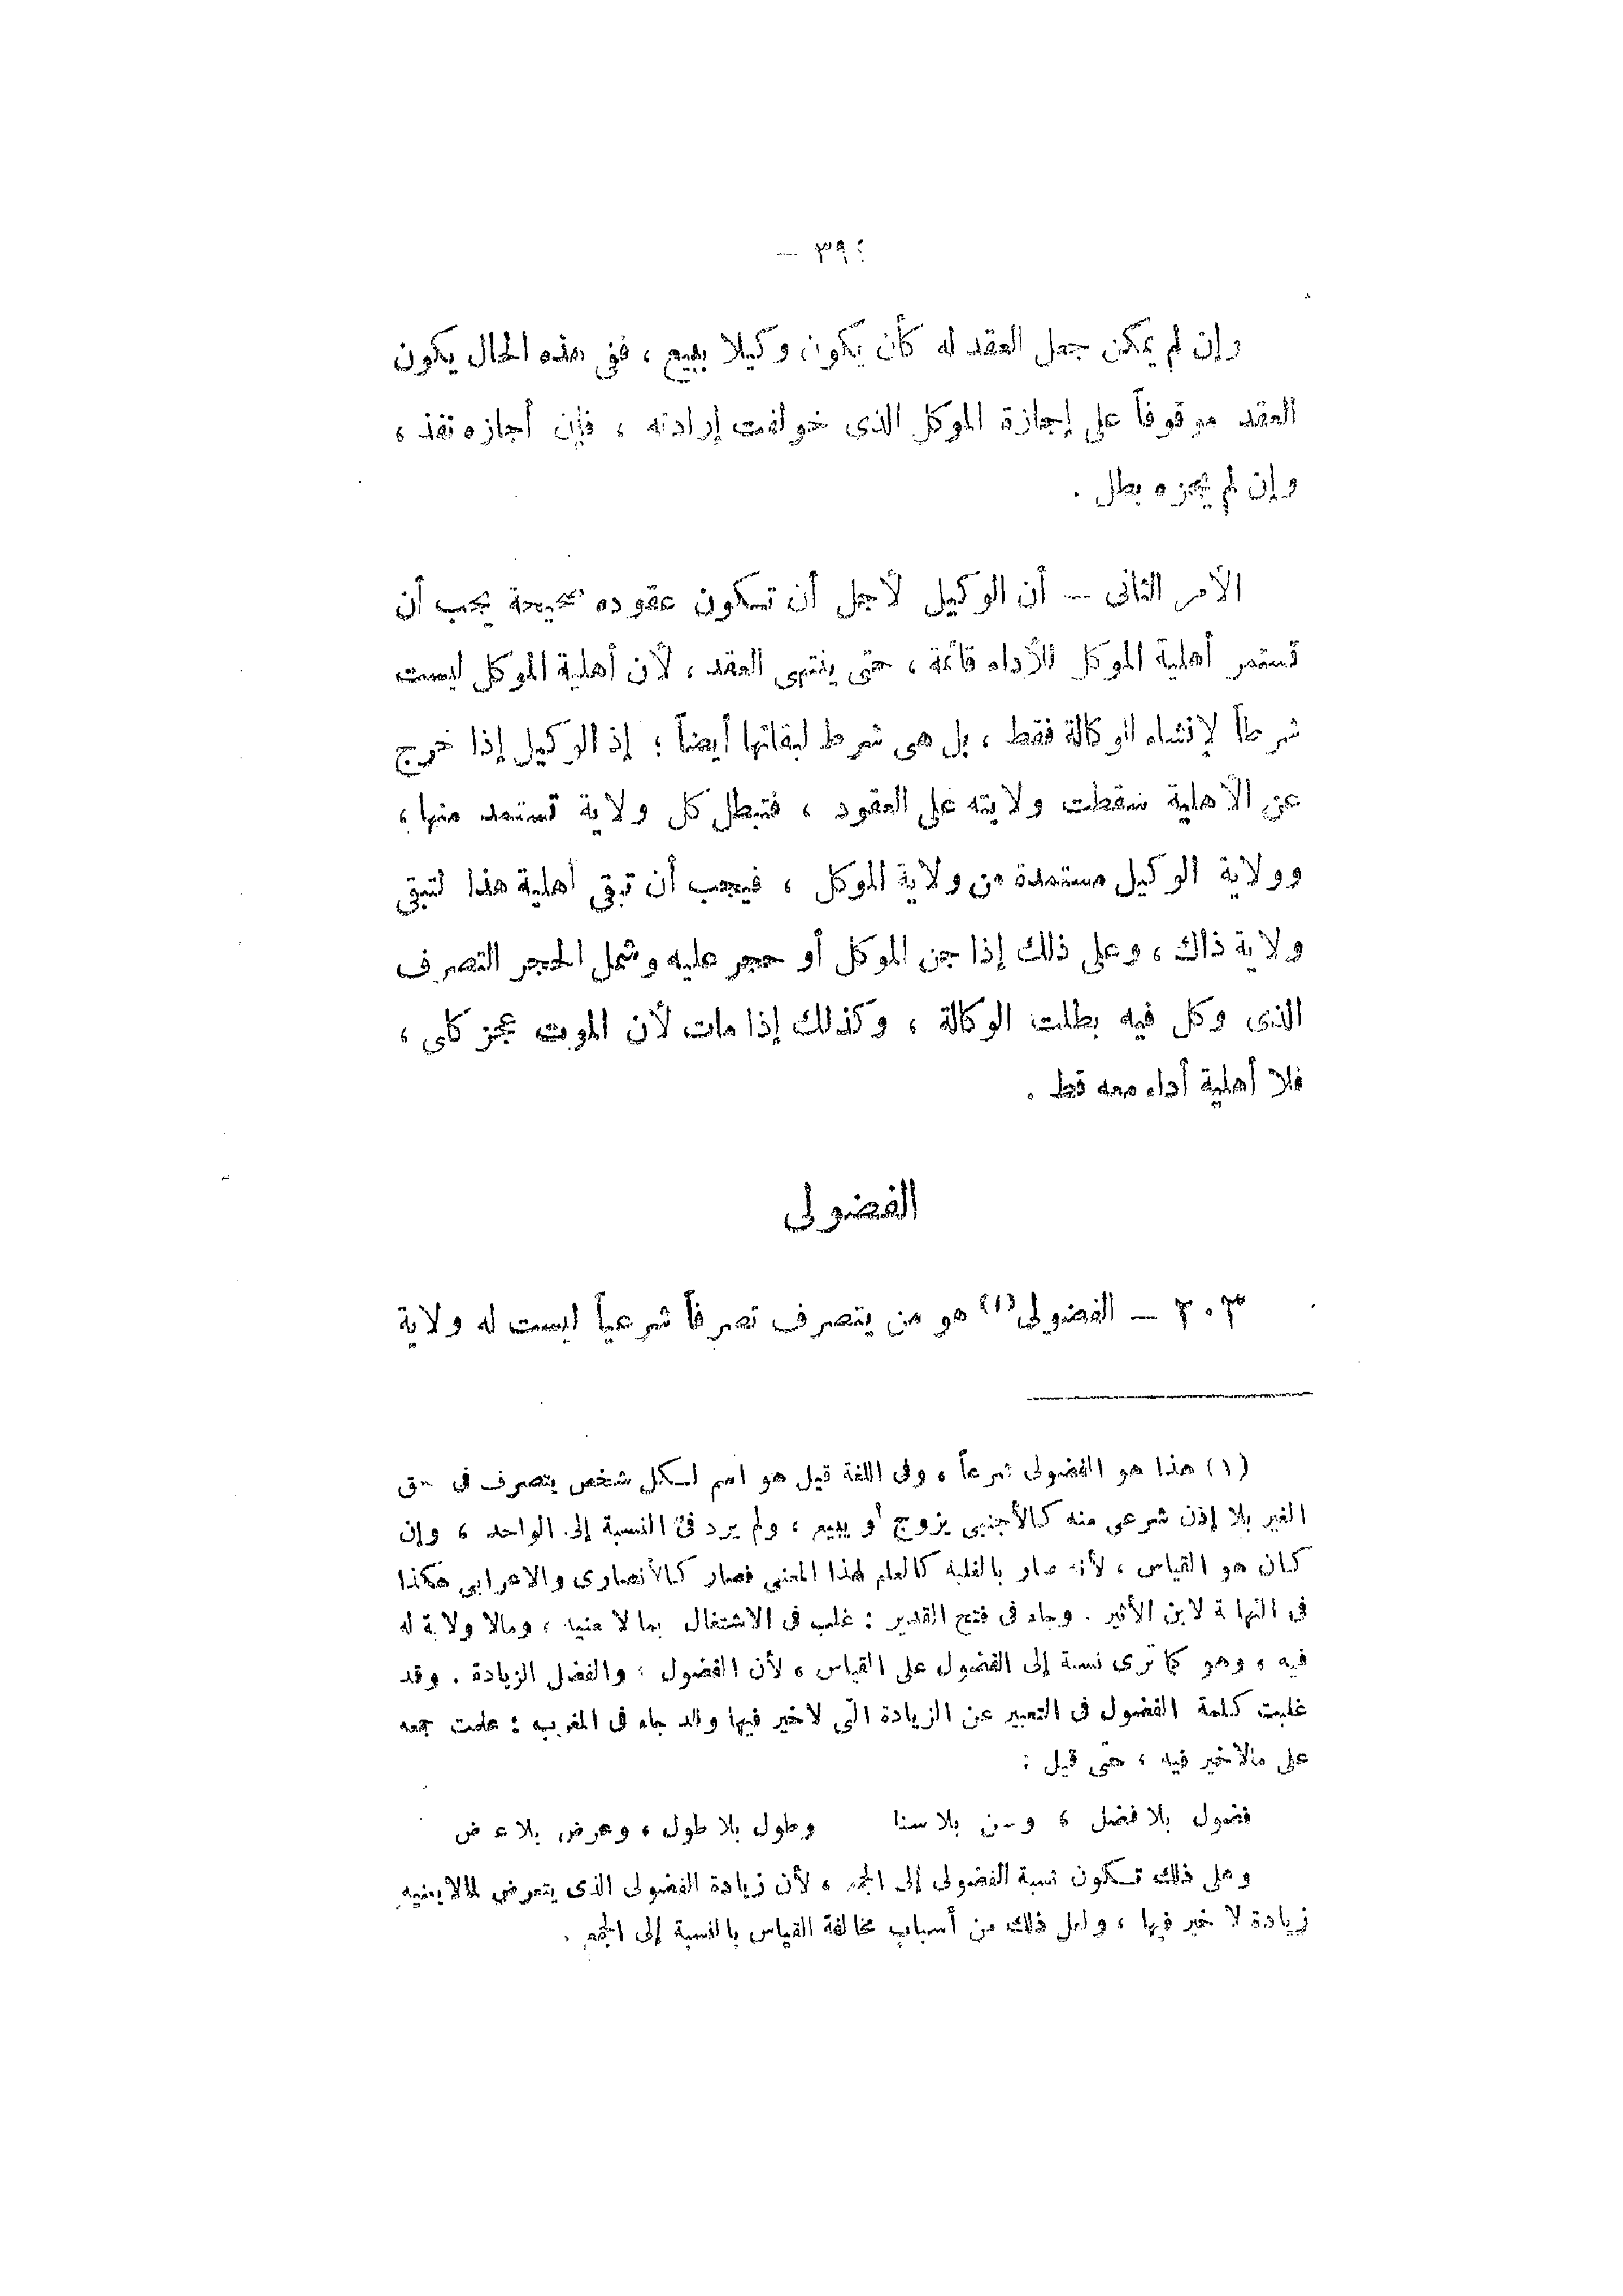 ٣٩٤ —
وإن لم يمكن جعل العقد له كأن يكون وكيلا ببيع ، ففى هذه الحال يكون
العقد موقوفاً على إجازة الموكل الذى خولفت إرادته ، فإن أجازه نفذ ،
وإن لم يجزه بطل .
الأمر الثانى — أن الوكيل لأجل أن تكون عقوده صحيحة يجب أن
تستمر أهلية الموكل للأداء قائمة ، حتى ينتهى العقد ، لأن أهلية الموكل ليست
شرطاً لإنشاء الوكالة فقط ، بل هى شرط لبقائها أيضاً ؛ إذ الوكيل إذا خرج
عن الأهلية سقطت ولايته على العقود ، فتبطل كل ولاية تستمد منها ،
وولاية الوكيل مستمدة من ولاية الموكل ، فيجب أن تبقى أهلية هذا لتبقى
ولاية ذاك ، وعلى ذلك إذا جن الموكل أو حجر عليه وشمل الحجر التصرف
الذى وكل فيه بطلت الوكالة ، وكذلك إذا مات لأن الموت عجز كلى ،
فلا أهلية أداء معه قط .
الفضولى
٢٠٣ — الفضولى (١) هو من يتصرف تصرفاً شرعياً ليست له ولاية
(١) هذا هو الفضولى شرعاً ، وفى اللغة قيل هو اسم لكل شخص يتصرف فى حق
الغير بلا إذن شرعى منه كالأجنبى يزوج أو يبيع ، ولم يرد فى النسبة إلى الواحد ، وإن
كان هو القياس ، لأنه صار بالغلبة كالعلم لهذا المعنى فصار كالأنصارى والاعرابى هكذا
فى النهاية لابن الأثير . وجاء فى فتح القدير : غلب فى الاشتغال بما لا يعنيه ، ومالا ولاية له
فيه ، وهو كما ترى نسبة إلى الفضول على القياس ، لأن الفضول ، والفضل الزيادة . وقد
غلبت كلمة الفضول فى التعبير عن الزيادة التى لاخير فيها وقد جاء فى المغرب : غلبت جمعه
على مالاخير فيه ، حتى قيل :
فضول بلا فضل ، وسن بلا سنا وطول بلا طول ، وعرض بلا عرض
وعلى ذلك تكون نسبة الفضولى إلى الجمع ، لأن زيادة الفضولى الذى يتعرض لمالا يعنيه
زيادة لا خير فيها ، ولعل ذلك من أسباب مخالفة القياس بالنسبة إلى الجمع .